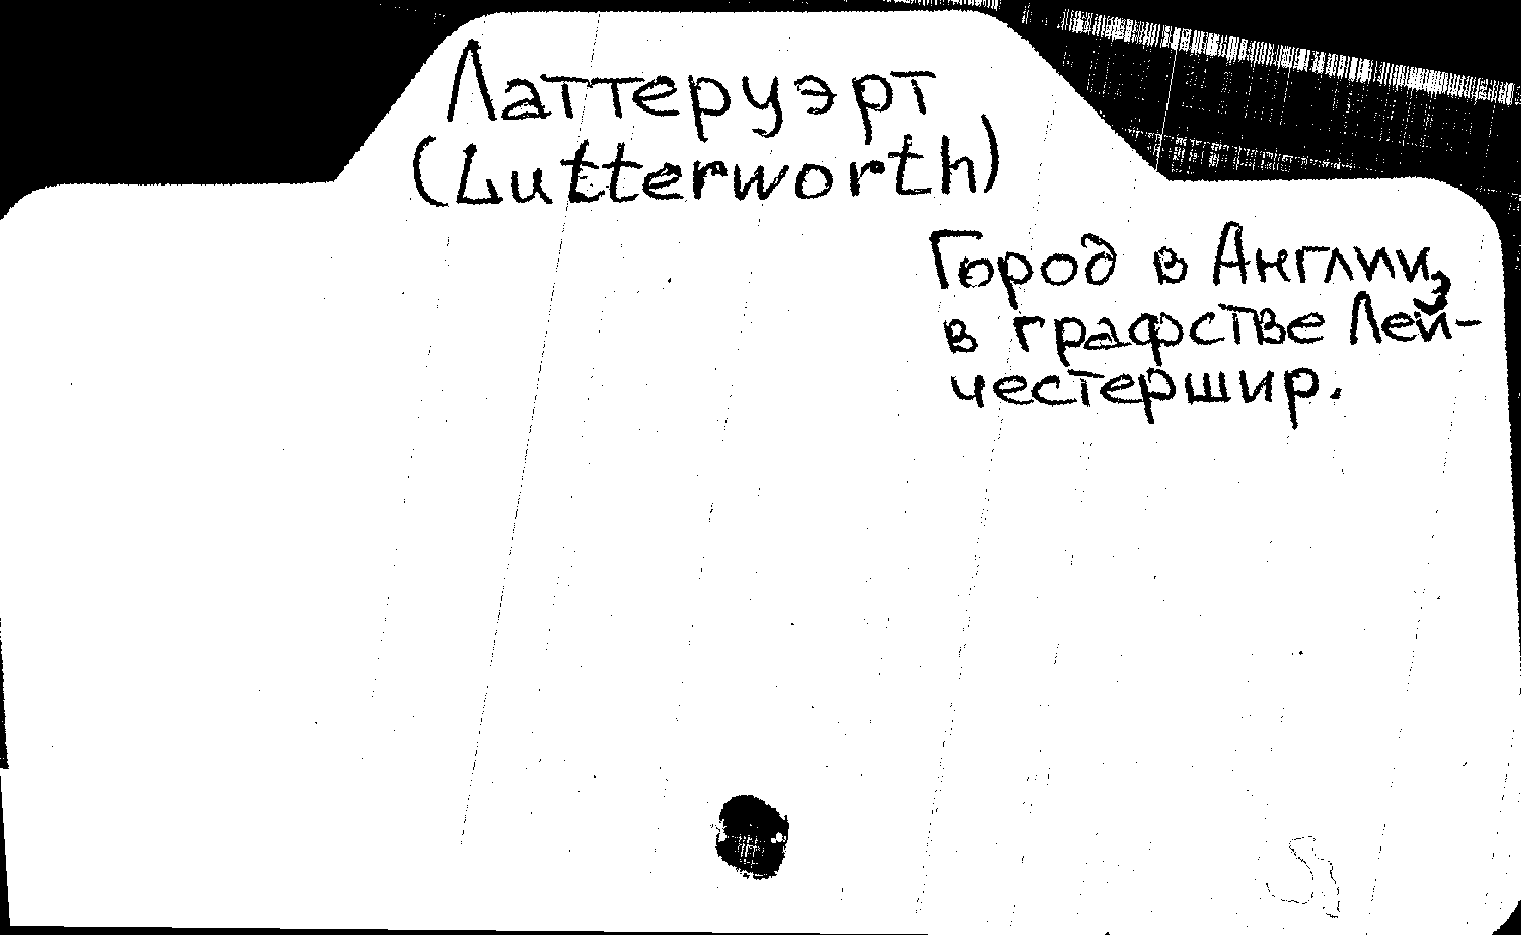 Латтеруэрт
(Lutterworth)
Город в Англии,
в графстве Лей-
честершир.